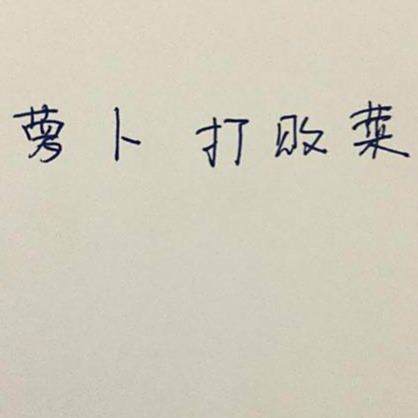 萝卜 打败菜